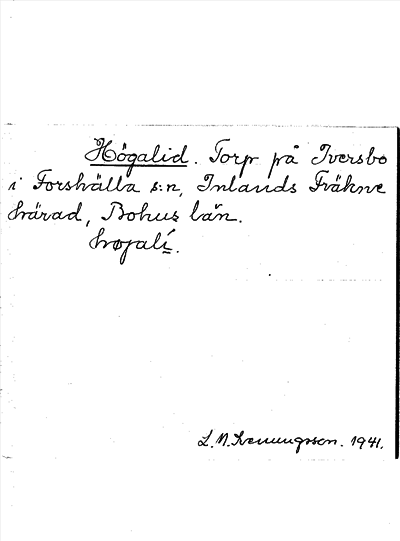 Högalid. Torp på Iversbo
i Forshälla s:n, Inlands Fräkne
härad, Bohus län.
højalí.
L. N. Svenungsson. 1941.